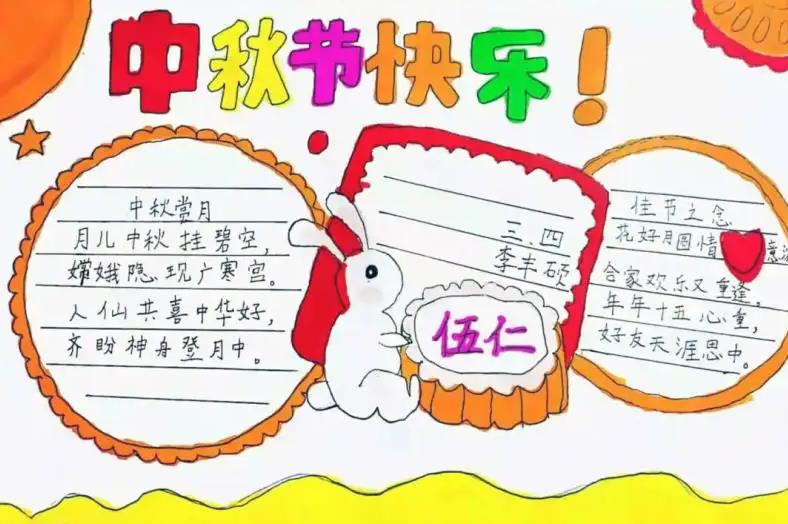 中秋节快乐！
中秋赏月
月儿中秋挂碧空，
嫦娥隐现广寒宫。
人仙共喜中华好，
齐盼神舟登月中。
三.四
李丰硕
伍仁
佳节之念
花好月圆情意
合家欢乐又重逢。
年年十五心重，
好友天涯思中。